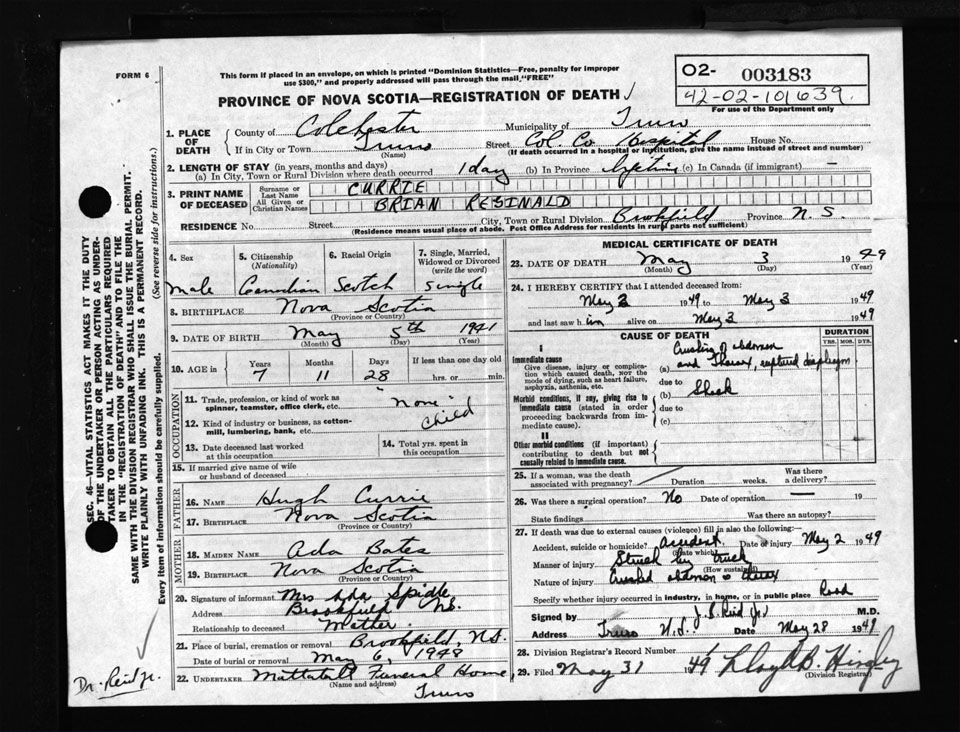 FORM 6
This form if placed in an envelope, on which is printed "Dominion Statistics—Free, penalty for improper
use $300," and properly addressed will pass through the mail "FREE"
O2- 003183
42-02-101639.
For use of the Department only
PROVINCE OF NOVA SCOTIA—REGISTRATION OF DEATH
1. PLACE OF DEATH
County of Colchester Municipality of Truro
If in City or Town Truro Street Col. Co. Hospital House No.
(Name) (If death occurred in a hospital or institution, give the name instead of street and number)
2. LENGTH OF STAY (in years, months and days)
(a) In City, Town or Rural Division where death occurred 1 day (b) In Province lifetime (c) In Canada (if immigrant) —
3. PRINT NAME OF DECEASED
Surname or Last Name CURRIE
All Given or Christian Names BRIAN REGINALD
RESIDENCE No. Street City, Town or Rural Division Brookfield Province N.S.
(Residence means usual place of abode. Post Office Address for residents in rural parts not sufficient)
4. Sex
male
5. Citizenship
(Nationality)
Canadian
6. Racial Origin
Scotch
7. Single, Married,
Widowed or Divorced
(write the word)
Single
8. BIRTHPLACE Nova Scotia
(Province or Country)
9. DATE OF BIRTH May 5th 1941
(Month) (Day) (Year)
10. AGE in Years Months Days If less than one day old
7 11 28 hrs. or min.
OCCUPATION
11. Trade, profession, or kind of work as
spinner, teamster, office clerk, etc. "none"
12. Kind of industry or business, as cotton-
mill, lumbering, bank, etc. child
13. Date deceased last worked
at this occupation
14. Total yrs. spent in
this occupation
15. If married give name of wife
or husband of deceased
FATHER
16. NAME Hugh Currie
17. BIRTHPLACE Nova Scotia
(Province or Country)
MOTHER
18. MAIDEN NAME Ada Bates
19. BIRTHPLACE Nova Scotia
(Province or Country)
20. Signature of informant Mrs Ada Spidle
Address Brookfield NS.
Relationship to deceased Mother
21. Place of burial, cremation or removal Brookfield, N.S.
Date of burial or removal May 6, 1948
22. UNDERTAKER Mattatall Funeral Home,
(Name and address) Truro
MEDICAL CERTIFICATE OF DEATH
23. DATE OF DEATH May 3 1949
(Month) (Day) (Year)
24. I HEREBY CERTIFY that I attended deceased from:
May 2 1949 to May 3 1949
and last saw him alive on May 3 1949
CAUSE OF DEATH
DURATION
YRS. MOS. DYS.
I
Immediate cause
Give disease, injury or complica-
tion which caused death, not the
mode of dying, such as heart failure,
asphyxia, asthenia, etc.
Crushing of abdomen
(a) and Thorax, ruptured diaphragm
due to
(b) Shock
Morbid conditions, if any, giving rise to
immediate cause (stated in order
proceeding backwards from im-
mediate cause).
due to
(c)
II
Other morbid conditions (if important)
contributing to death but not
causally related to immediate cause.
25. If a woman, was the death
associated with pregnancy? Duration weeks. Was there
a delivery?
26. Was there a surgical operation? No Date of operation 19
State findings Was there an autopsy?
27. If death was due to external causes (violence) fill in also the following:—
Accident, suicide or homicide? Accident. Date of injury May 2 1949
(State which)
Manner of injury Struck by truck
(How sustained)
Nature of injury Crushed abdomen & thorax
Specify whether injury occurred in industry, in home, or in public place Road
Signed by J. B. Reid Jr. M.D.
Address Truro N.S. Date May 28 1949
28. Division Registrar's Record Number
29. Filed May 31 1949 Lloyd B.
(Division Registrar)
SEC. 46—VITAL STATISTICS ACT MAKES IT THE DUTY
OF THE UNDERTAKER OR PERSON ACTING AS UNDER-
TAKER TO OBTAIN ALL THE PARTICULARS REQUIRED
IN THE "REGISTRATION OF DEATH" AND TO FILE THE
SAME WITH THE DIVISION REGISTRAR WHO SHALL ISSUE THE BURIAL PERMIT.
WRITE PLAINLY WITH UNFADING INK. THIS IS A PERMANENT RECORD.
Every item of information should be carefully supplied. (See reverse side for instructions.)
Dr. Reid Jr.